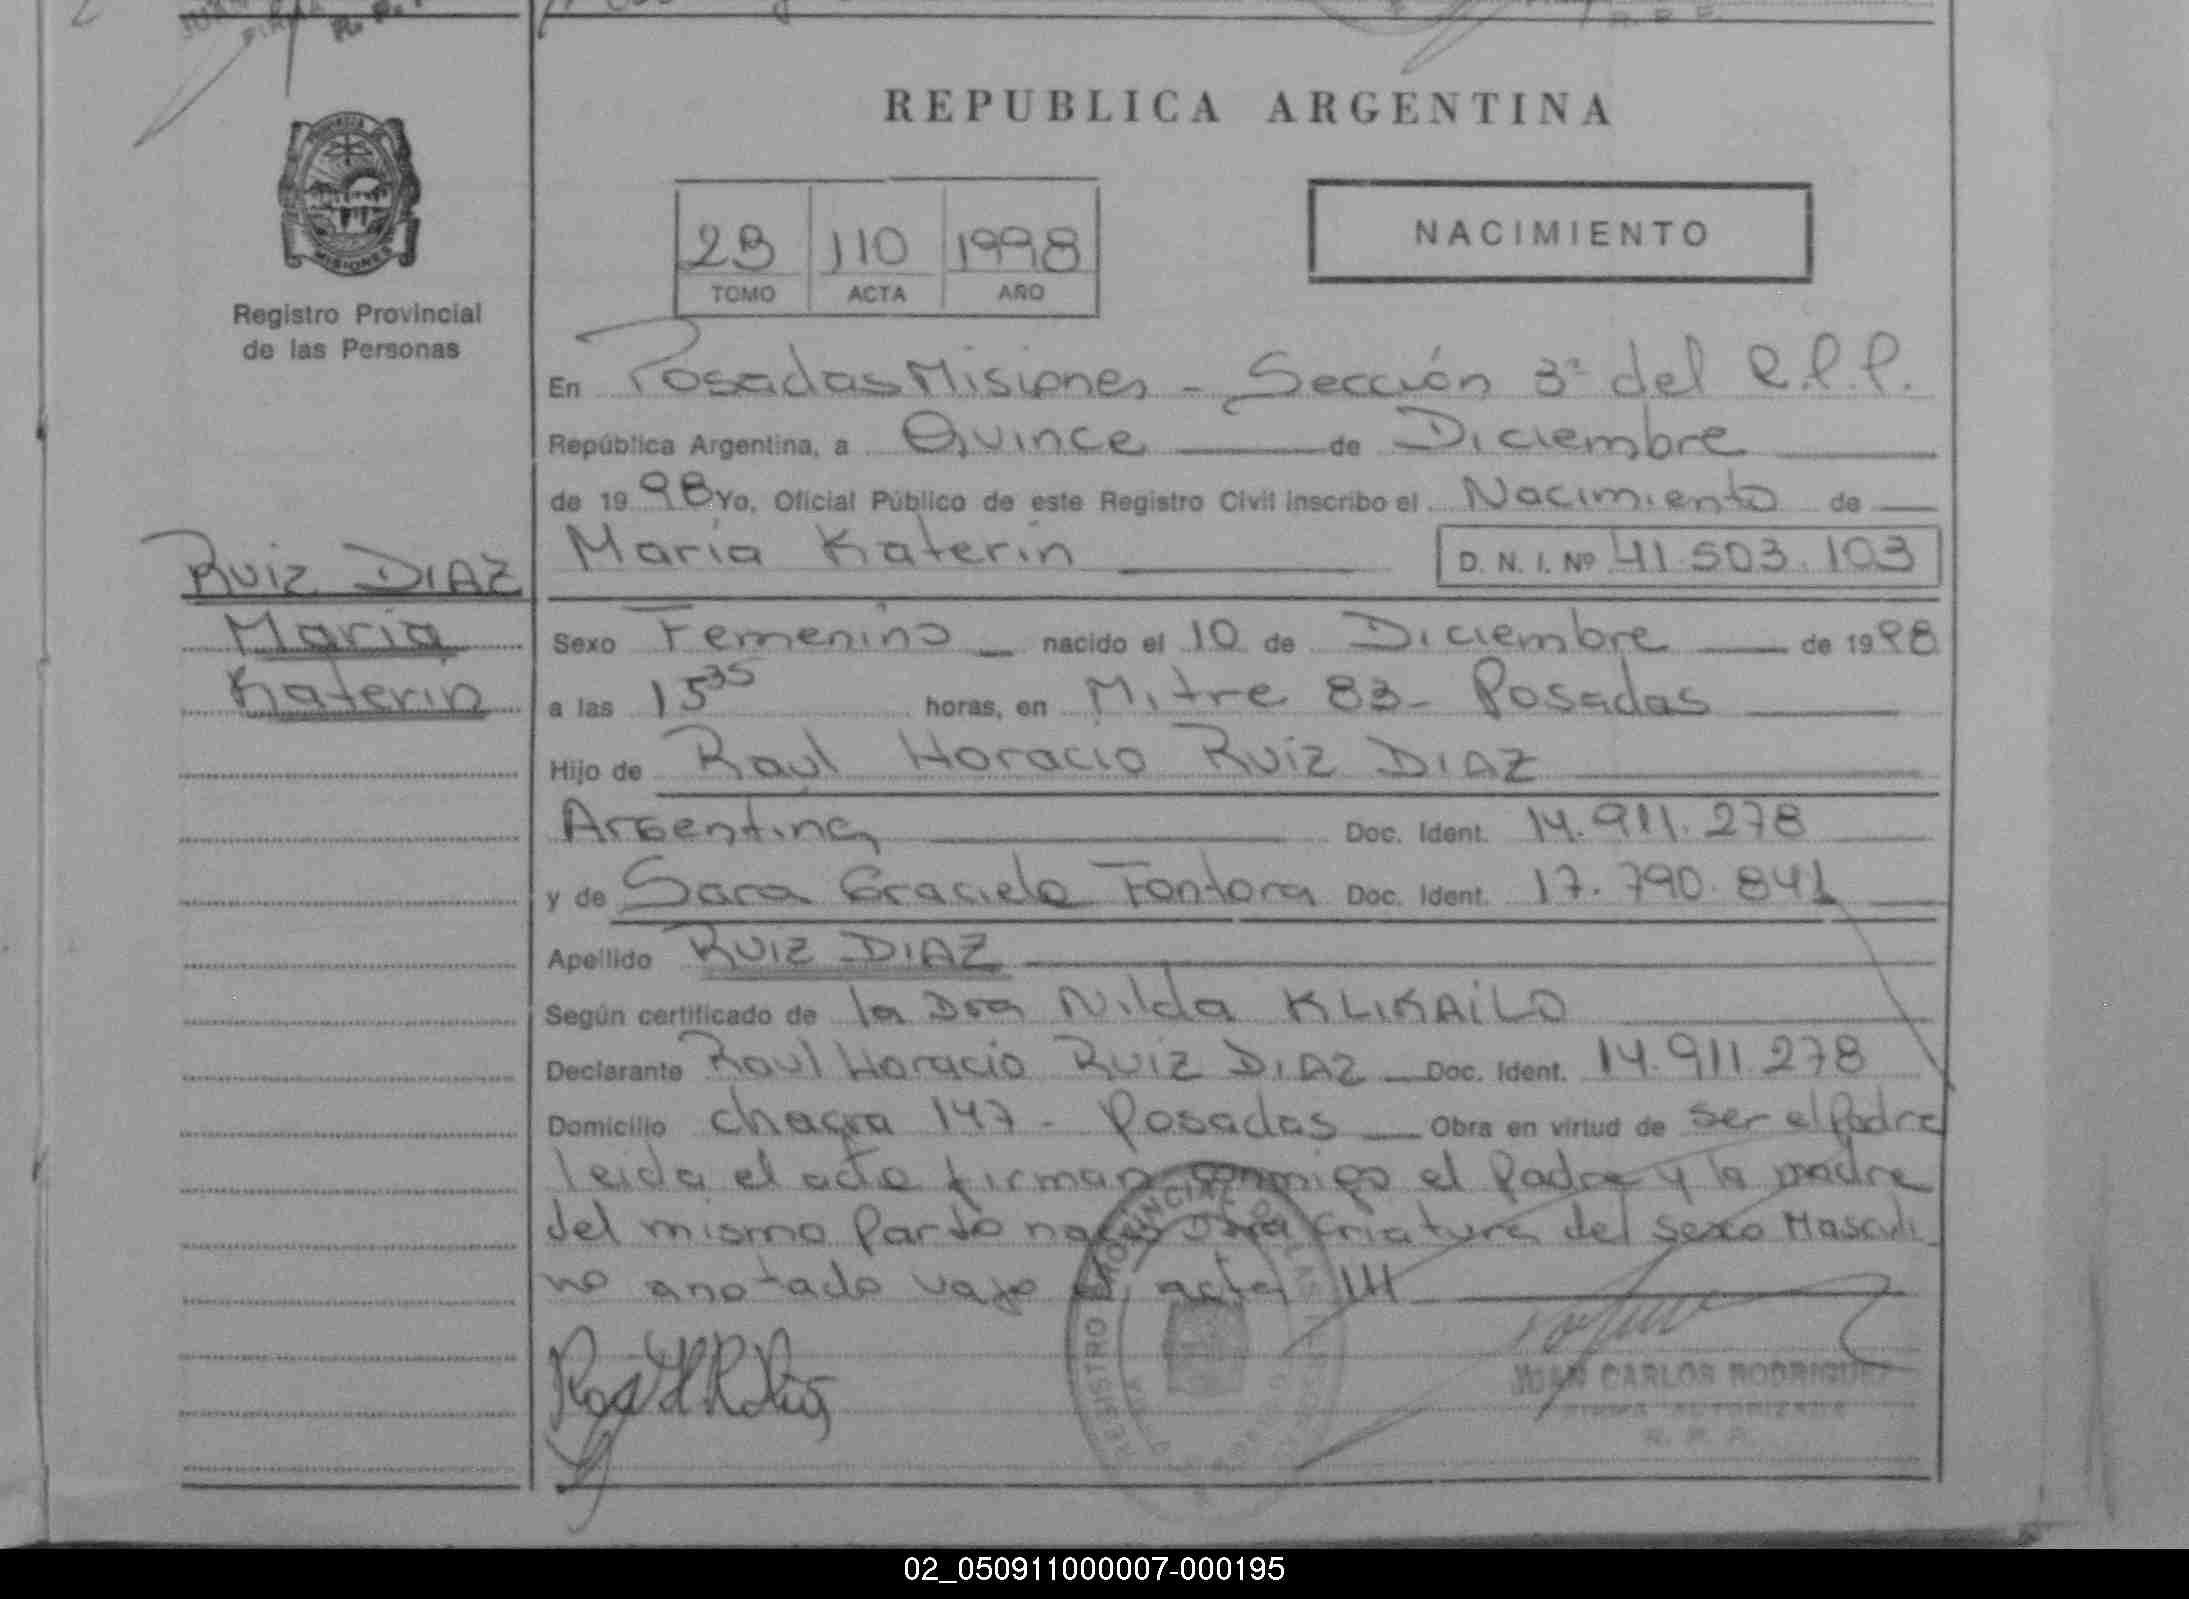 REPUBLICA ARGENTINA
PROVINCIA DE
MISIONES
Registro Provincial
de las Personas
2B 110 1998
TOMO ACTA AÑO
NACIMIENTO
En Posadas Misiones - Sección 3ª del R.P.P.
República Argentina, a Quince de Diciembre
de 1998 Yo, Oficial Público de este Registro Civil inscribo el Nacimiento de
María Katerin D. N. I. Nº 41.503.103
RUIZ DIAZ
María
Katerin
Sexo Femenino nacido el 10 de Diciembre de 1998
a las 15 35 horas, en Mitre 83 - Posadas
Hijo de Raúl Horacio Ruiz DIAZ
Argentina Doc. Ident. 14.911.278
y de Sara Graciela Fontora Doc. Ident. 17.790.841
Apellido RUIZ DIAZ
Según certificado de la Dra Nilda KLIKAiLO
Declarante Raul Horacio RUIZ DIAZ Doc. Ident. 14.911.278
Domicilio chacra 147 - Posadas Obra en virtud de ser el Padre
leida el acta firman conmigo el Padre y la madre
del mismo Parto nació otra criatura del sexo Masculi
no anotado vajo el acta 111
REGISTRO PROVINCIAL DE LAS
JUAN CARLOS RODRIGUEZ
FIRMA AUTORIZADA
R. P. P.
02_050911000007-000195